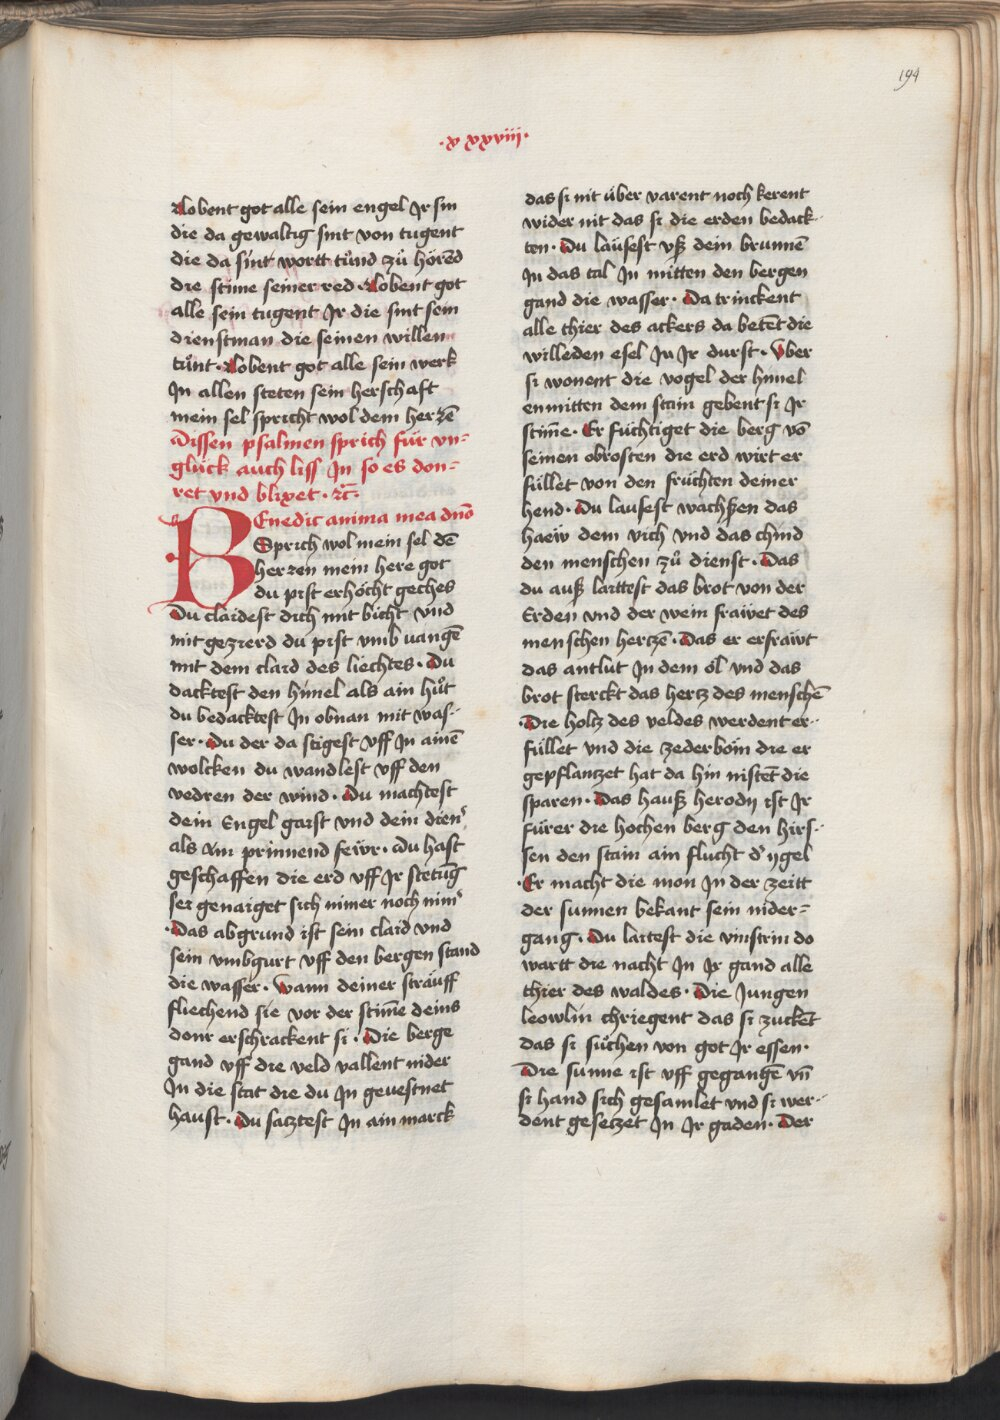 194
·v xxviii·
Lobent got alle sein engel Ir sin
die da gewaltig sint von tugent
die da sint wortt tůnd zů hörēd
die stime seiner red · Lobent got
alle sein tugent Ir die sint sein
dienstman die seinen willen
tůnt · Lobent got alle sein werk
In allen steten sein herschaft
mein sel spricht wol dem herzē
Dissen psalmen sprich für vn=
glück auch liss In so es don=
ret vnd blixet · rc̄·
BEnedic anima mea dn̄o
Sprich wol mein sel dē
herzen mein here got
du prst erhöcht geches
Du claidest dich mit bücht vnd
mit gezierd du prst vmb vangē
mit dem claid des liechtes · Du
dacktest den himel als ain hůt
du bedacktest In obnan mit was-
ser · Du der da stigest vff In ainē
wolcken du wandlest vff den
vedren der wind · Du machtest
dein Engel gaist vnd dein dien'
als ain prinnend feiwr · du hast
geschaffen die erd vff Ir stetūg
sei genaiget sich nimer noch nim'
· Das abgrund ist sein claid vnd
sein vmbgurt vff den bergen stand
die wasser · Wann deiner sträuff
fliechend sie vor der stim̄e deins
donr erschrackent si · Die berge
gand vff die veld vallent nider
In die stat die du In geuestnet
haust · Du satztest In ain marck
das si nit über varent noch kerent
wider nit das si die erden bedack-
ten · Du laufest vß dein brunnē
In das tal In mitten den bergen
gand die wasser · Da trinckent
alle thier des ackers da betēt die
willeden esel In Ir durst · Vber
si wonent die vogel der himel
enmitten dem stain gebent si Ir
stim̄e · Er füchtiget die berg vō
seinen obrosten die erd wirt er
füllet von den früchten deiner
hend · Du laufest wachßen das
haew dem vich vnd das chind
den menschen zů dienst · Das
du auß laittest das brot von der
Erden vnd der wein fraiwet des
menschen hertzē · Das er erfraiwt
das antlut In dem öl vnd das
brot sterckt das hertz des menschē
· Die holtz des veldes werdent er-
füllet vnd die zederböm die er
gepflantzet hat da hin nistēt die
sparen · Das hauß herodij ist Ir
fürer die hochen berg den hirs-
sen den stain ain flucht d' ygel
· Er macht die mon In der zeitt
der sunnen bekant sein nider=
gang · Du laitest die vinstrin do
wartt die nacht In Ir gand alle
thier des waldes · Die Jungen
leowlin chriegent das si zuckēt
das si sůchen von got Ir essen ·
Die sunne ist vff gegangē vn̄
si hand sich gesamlet vnd si wer-
dent gesetzet In Ir gaden · Der